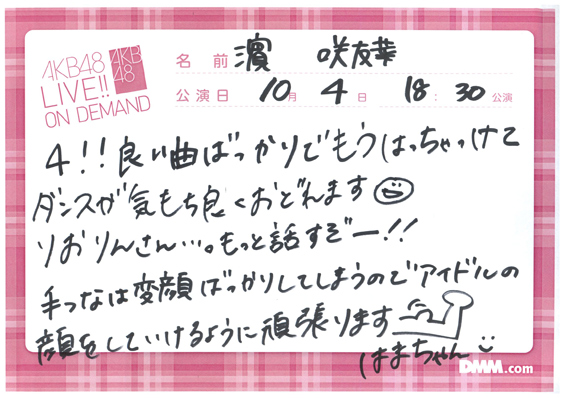 AKB48
LIVE!!
ON DEMAND
AKB
48
名前 濵 咲友菜
公演日 10月 4日 18:30公演
4!!良い曲ばっかりでもうはっちゃっけて
ダンスが気もち良くおどれます
りおりんさん…。もっと話すぞー!!
手つなは変顔ばっかりしてしまうのでアイドルの
顔をしていけるように頑張ります
はまちゃん
DMM.com